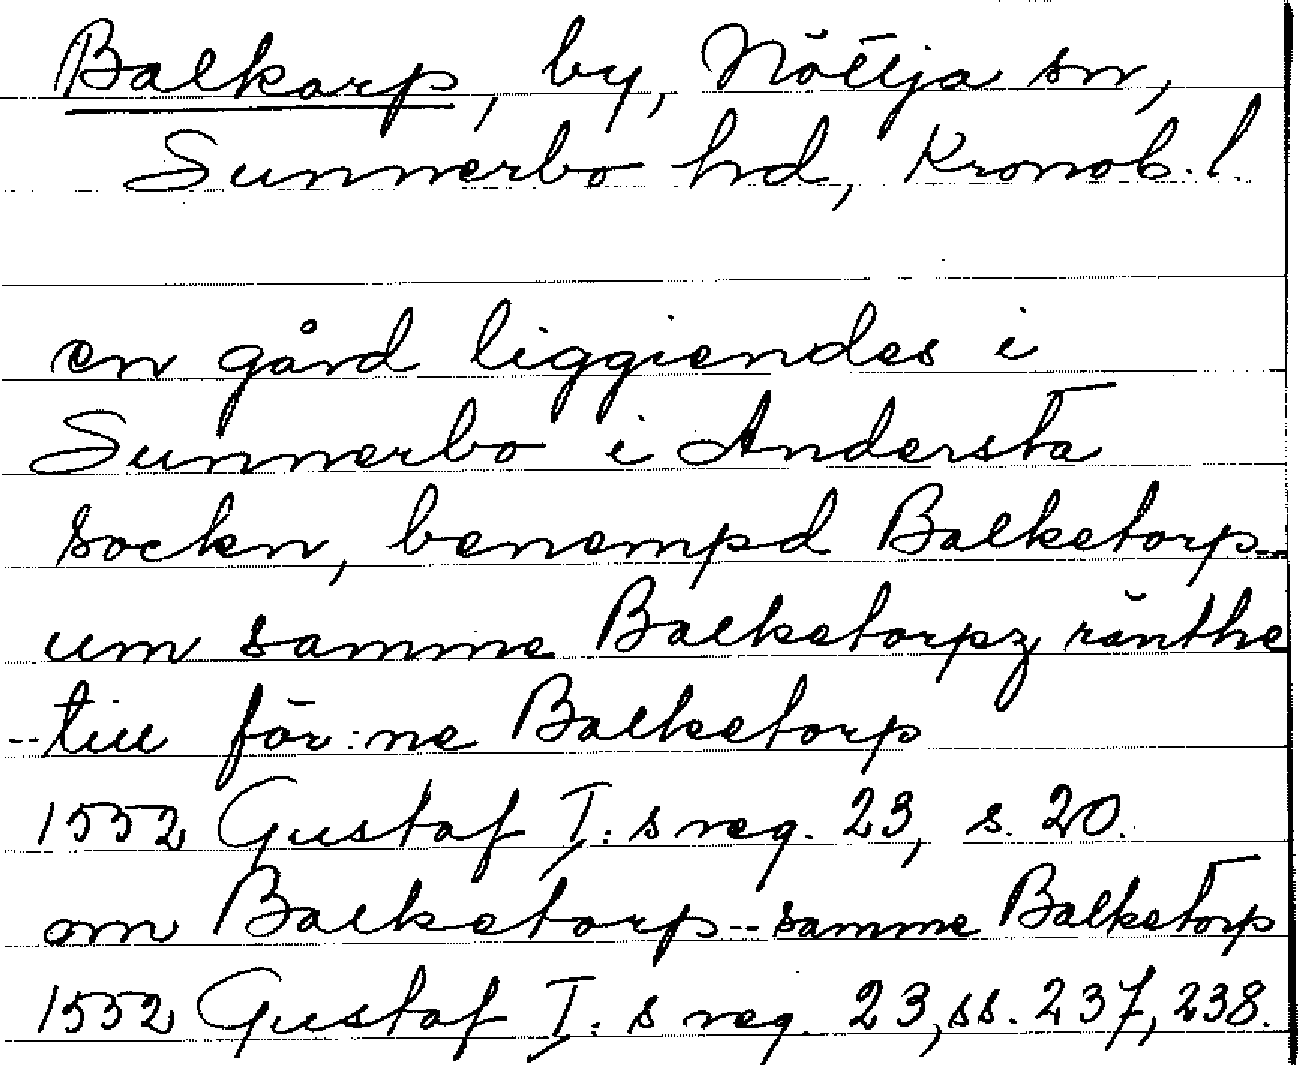 Balkarp, by, Nöttja sn,
Sunnerbo hd, Kronob. l.
en gård liggiendes i
Sunnerbo i Andersta
sockn, benempd Balketorp--
um samme Balketorpz ränthe
--till för:ne Balketorp
1552 Gustaf I:s reg. 23, s. 20.
om Balketorp--samme Balketorp
1552 Gustaf I:s reg. 23, ss. 237, 238.